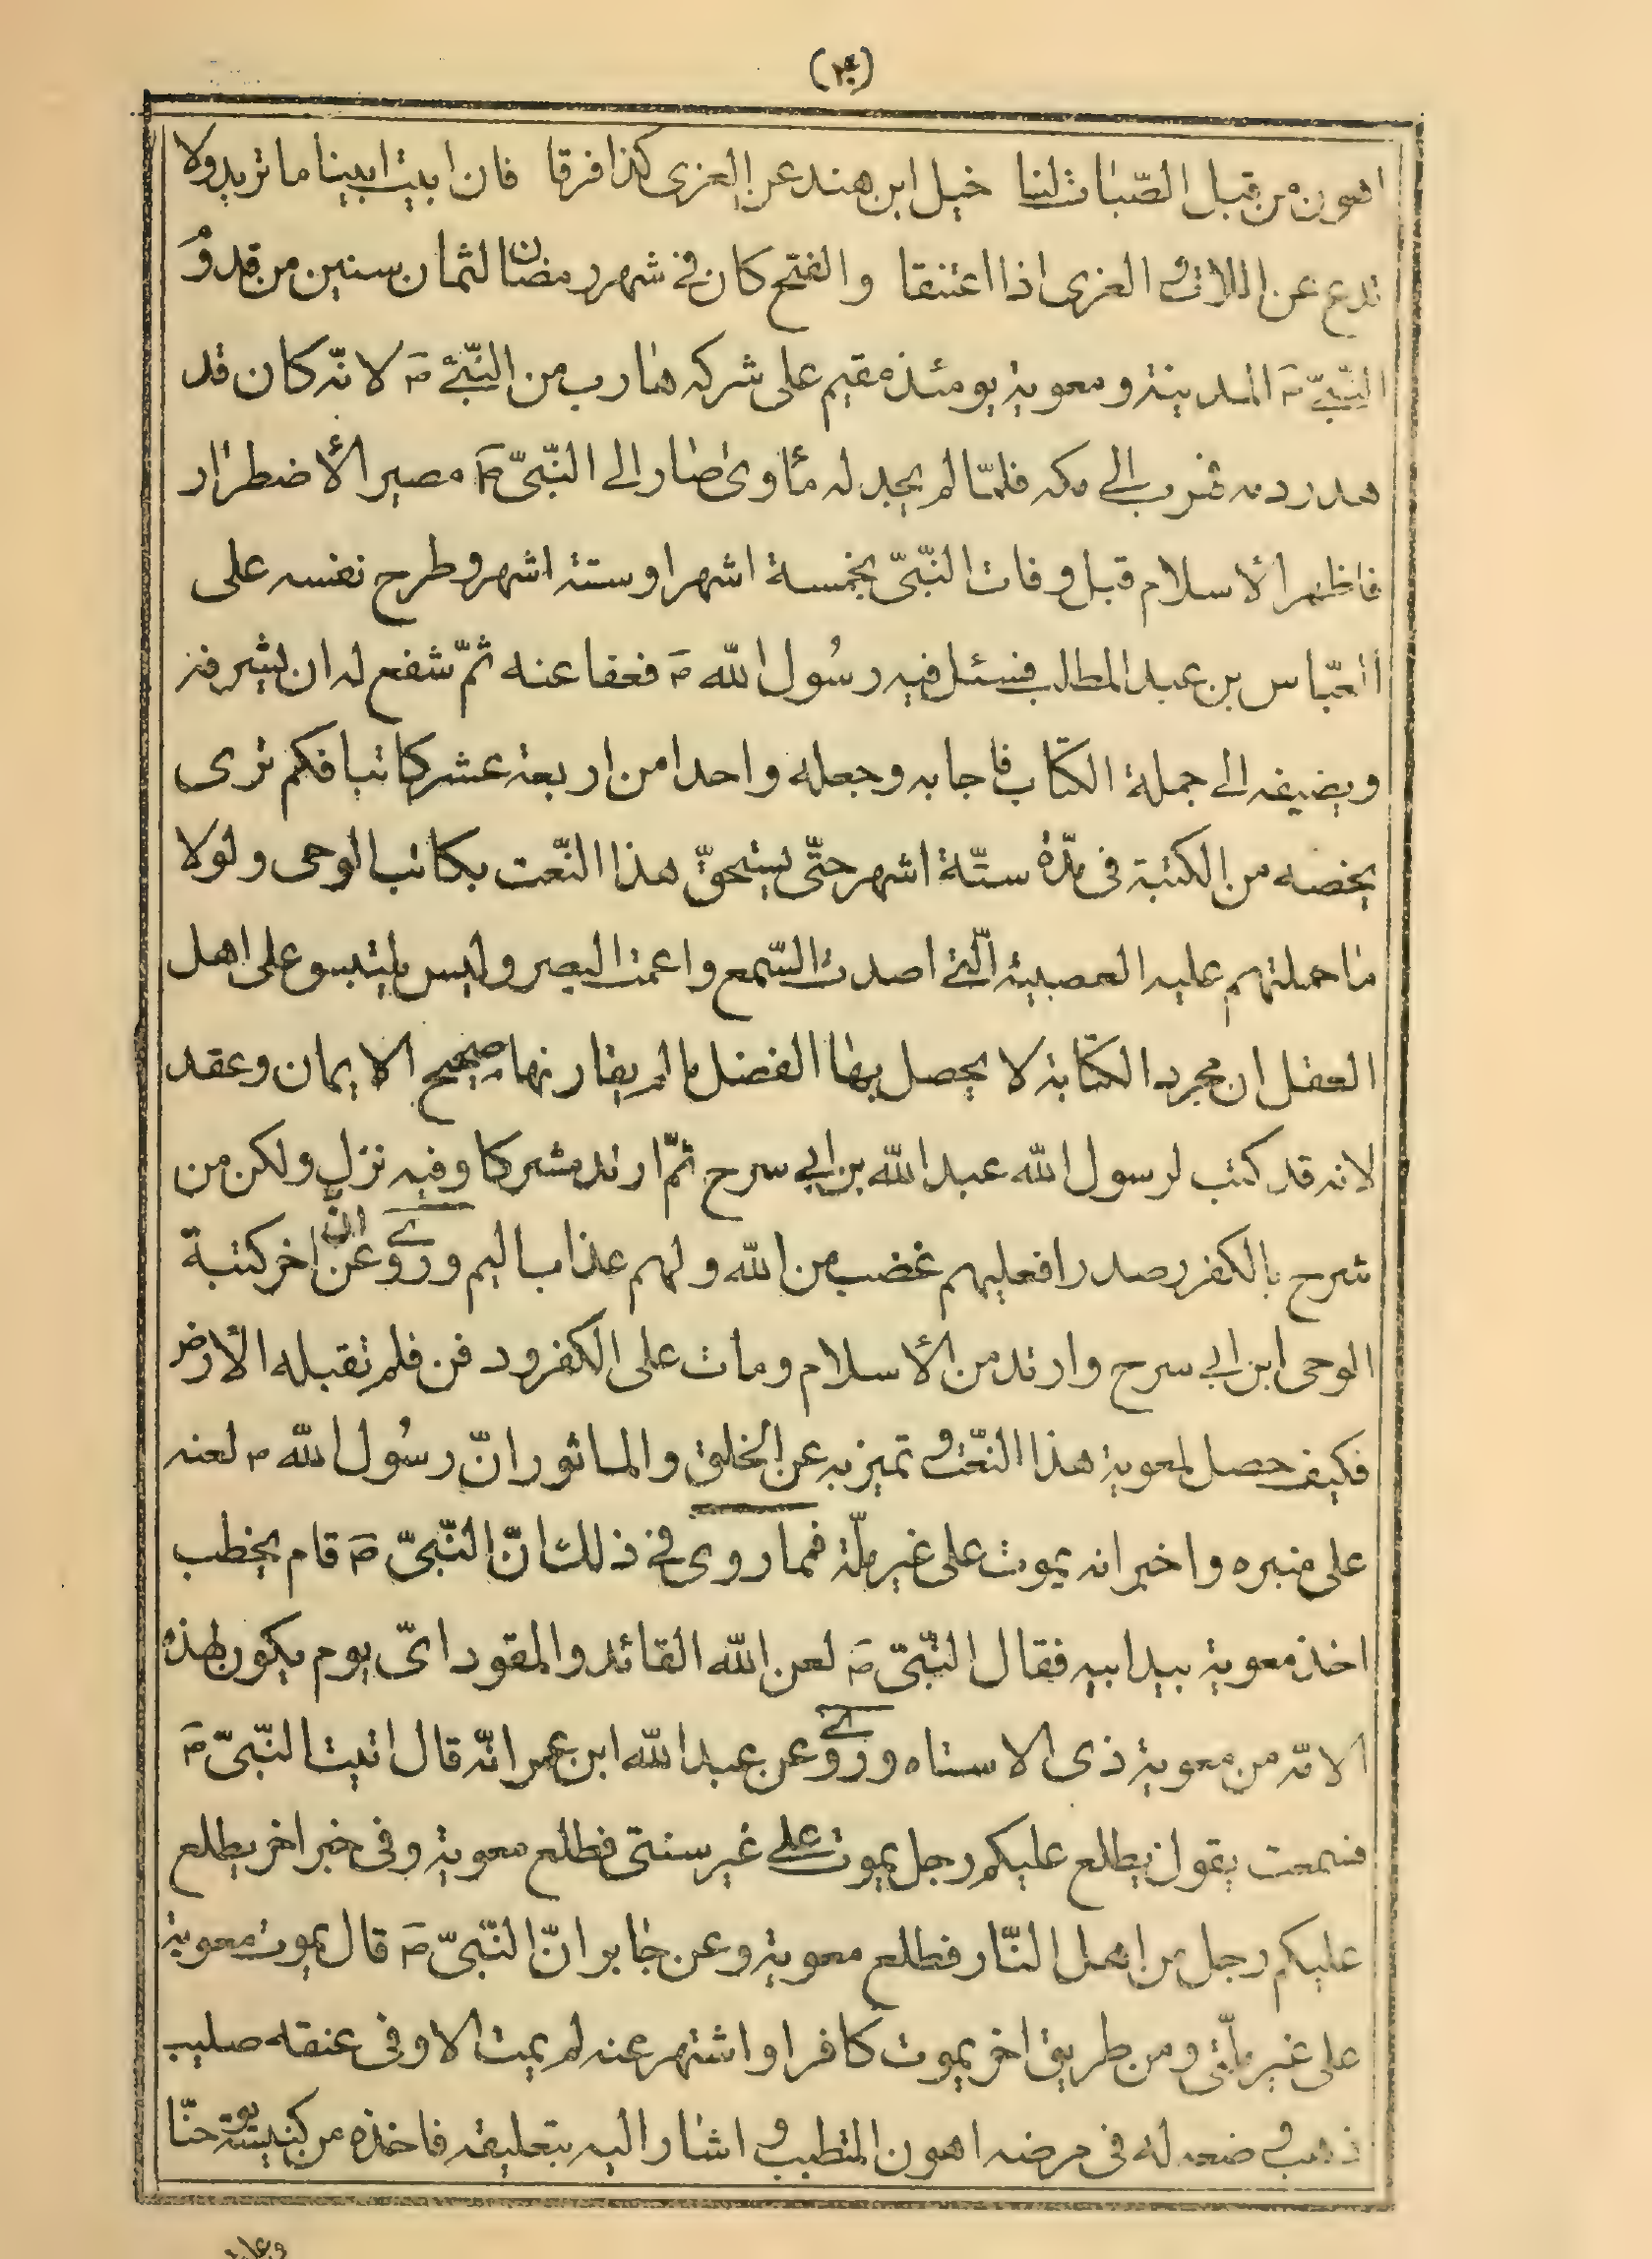 (٢٠)
اهون من قبل الصّبات لنا خيل ابن هند عن العزى كذا فرقا فان ابيت ابينا ما تريد ولا
تدع عن اللات و العزى اذا اعتنقا والفتح كان فى شهر رمضان لثمان سنين من قدوم
النّبىّ ص المدينة ومعوية يومئذ مقيم على شركه هارب من النّبىّ ص لانّه كان قد
هدر دمه فهرب الى مكه فلمّا لم يجد له مأوى صار الى النّبىّ ص مصير الأضطرار
فاظهر الأسلام قبل وفات النّبىّ بخمسة اشهر او ستة اشهر وطرح نفسه على
العبّاس بن عبد المطلب فسئل فيه رسُول الله ص فعفا عنه ثمّ شفع له ان يشرفه
ويضيفه الى جملة الكتّاب فاجابه وجعله واحدا من اربعة عشر كاتبا فكم ترى
يخصه من الكتبة فى مدّة ستّة اشهر حتّى يستحقّ هذا النّعت بكاتب الوحى ولولا
ما حملتهم عليه العصبية الّتى اصدت السّمع واعمت البصر وليس يلتبس على اهل
العقل ان مجرد الكتابة لا يحصل بها الفضل ما لم يقارنها صحيح الايمان وعقد
لانه قد كتب لرسول الله عبد الله بن ابى سرح ثمّ ارتد مشركا وفيه نزل ولكن من
شرح بالكفر صدرا فعليهم غضب من الله ولهم عذاب اليم وروى عن انّ اخر كتبة
الوحى ابن ابى سرح وارتد من الأسلام ومات على الكفر ودفن فلم تقبله الأرض
فكيف حصل لمعوية هذا النّعت و تميز به عن الخلق والماثور انّ رسُول الله ص لعنه
على منبره واخبر انه يموت على غير ملّة فمما روى فى ذلك انّ النّبىّ ص قام يخطب
اخذ معوية بيد ابيه فقال النّبىّ ص لعن الله القائد والمقود اىّ يوم يكون لهذه
الامّه من معوية ذى الاستاه وروى عن عبد الله ابن عمر انّه قال اتيت النّبىّ ص
فسمعت يقول يطلع عليكم رجل يموت على غير سنتى فطلع معوية وفى خبر اخر يطلع
عليكم رجل من اهل النّار فطلع معوية وعن جابر انّ النّبىّ ص قال يموت معوية
على غير ملّتى ومن طريق اخر يموت كافرا واشتهر عنه لم يمت الا وفى عنقه صليب
ذهب وضعه له فى مرضه اهون المتطبب و اشار اليه بتعليقه فاخذه من كنيسة يوحنّا